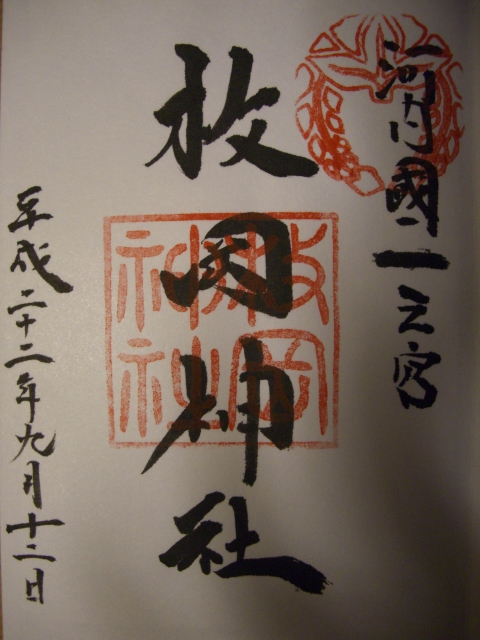 河内國一之宮
枚岡神社
枚岡神社
平成二十二年九月十二日